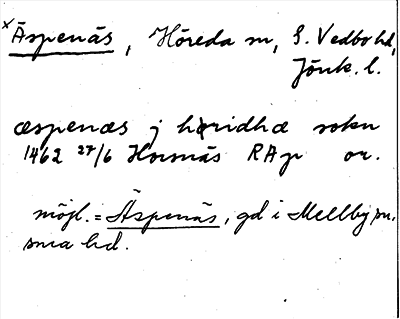 x Äspenäs, Höreda sn, S. Vedbo hd,
Jönk. l.
æspenæs j høridhæ sokn
1462 27/6 Hornsnäs RAp or.
möjl. = Äspenäs, gd i Mellby sn,
sma hd.